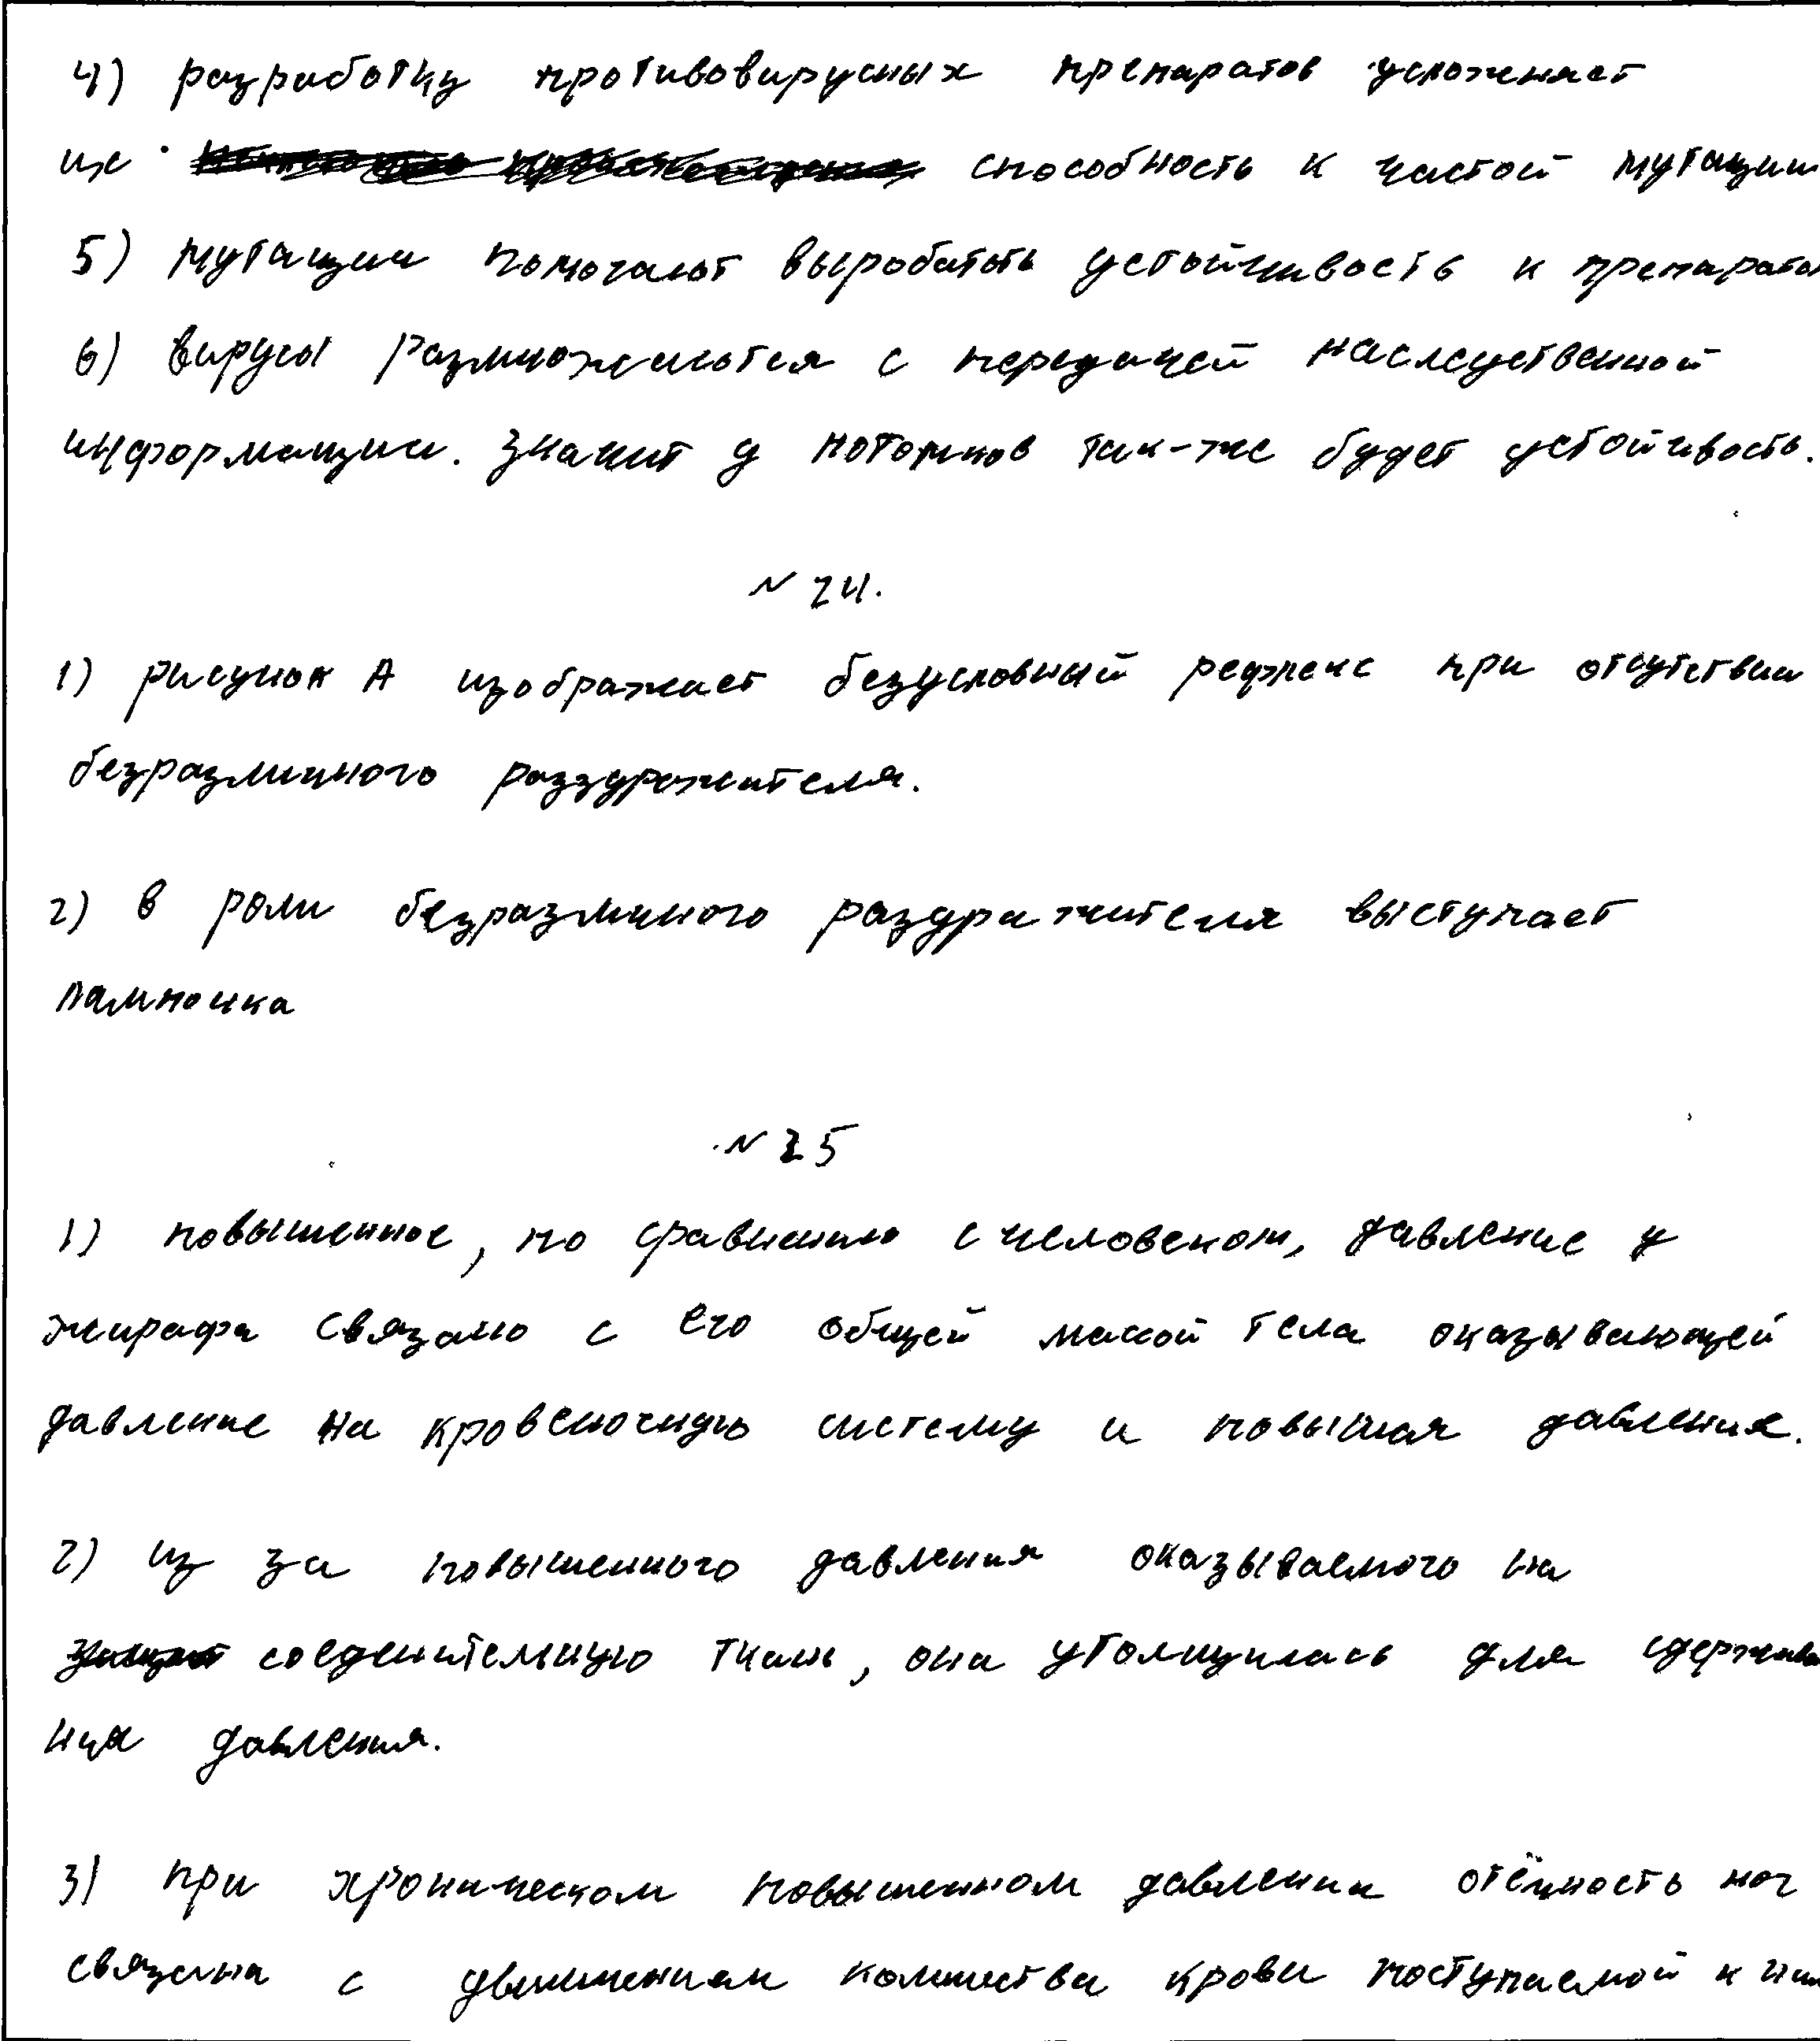 4) разработку противовирусных препаратов усложняет
их способность к частой мутации
5) мутации помогают выробатоть устойчивость к препарато
6) вирусы размножаются с передачей наследственной
информации. Значит у потомков так-же будет устойчивость.
№ 24.
1) рисунок А изображает безусловный рефлекс при отсутствии
безразличного раздрожителя.
2) в роли безразличного раздражителя выступает
лампочка
№ 25
1) повышенное, по сравнению с человеком, давление у
жирафа связано с его общей массой тела оказывающей
давление на кровеносную систему и повышая давление.
2) из за повышенного давления оказываемого на
соеденительную ткань, она утолщилась для сдержива
ния давления.
3) при хроническом повышенном давлении отёчность ног
связана с количества крови поступаемой к ним